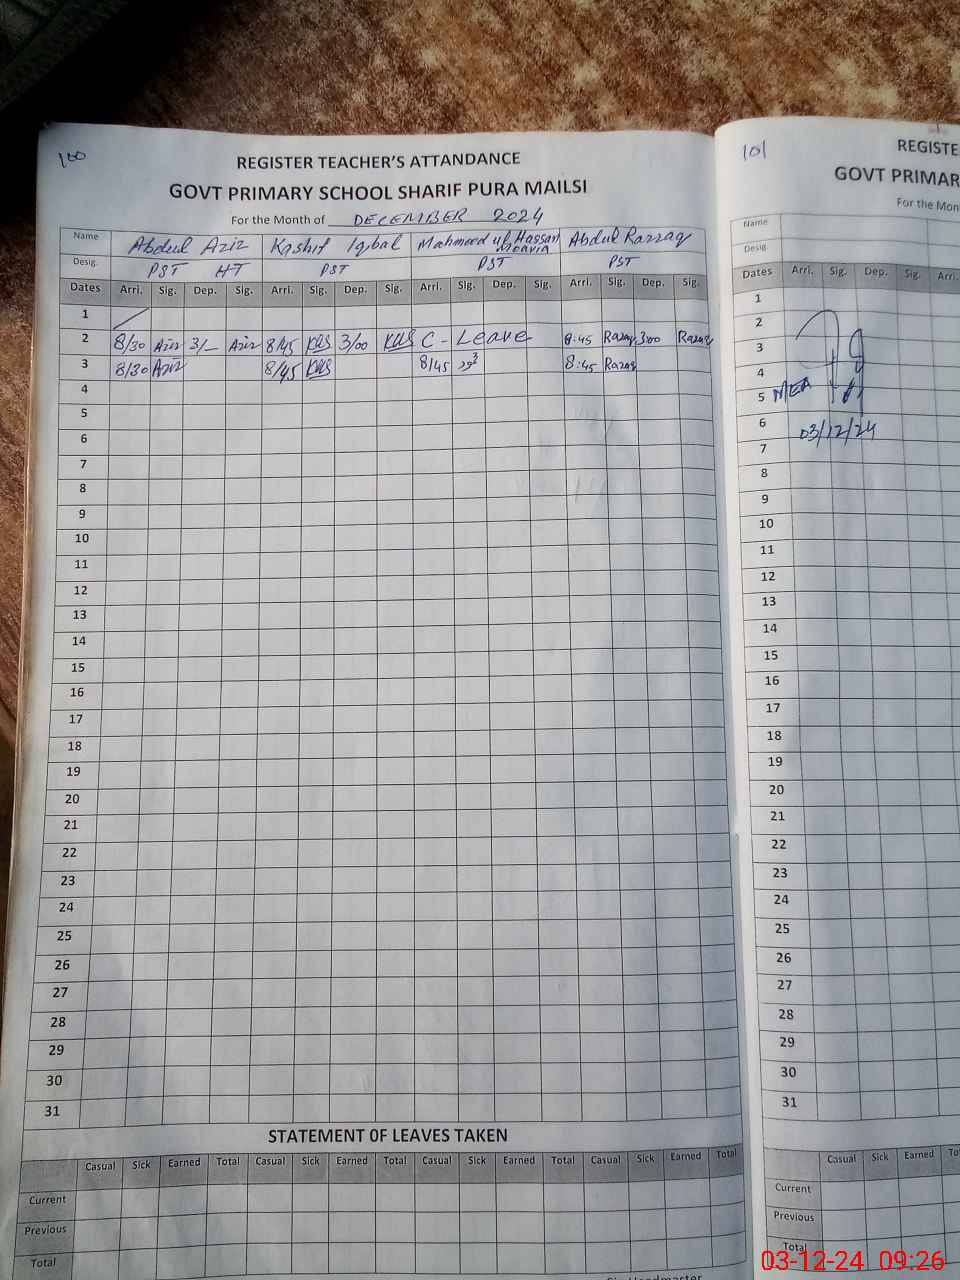 100
REGISTER TEACHER'S ATTANDANCE
GOVT PRIMARY SCHOOL SHARIF PURA MAILSI
For the Month of DECEMBER 2024
Name Abdul Aziz Kashif Iqbal Mahmood ul Hassan Moavia Abdul Razzaq
Desig. PST HT PST PST PST
Dates Arri. Sig. Dep. Sig. Arri. Sig. Dep. Sig. Arri. Sig. Dep. Sig. Arri. Sig. Dep. Sig.
1
2 8/30 Aziz 3/- Aziz 8/45 3/00 C - Leave 8:45 Razaq 3:00 Razaq
3 8/30 Aziz 8/45 8/45 8:45 Razaq
4
5
6
7
8
9
10
11
12
13
14
15
16
17
18
19
20
21
22
23
24
25
26
27
28
29
30
31
STATEMENT OF LEAVES TAKEN
Casual Sick Earned Total Casual Sick Earned Total Casual Sick Earned Total Casual Sick Earned Total
Current
Previous
Total
Headmaster
101
REGISTE
GOVT PRIMAR
For the Mon
Name
Desig.
Dates Arri. Sig. Dep. Sig. Arri.
1
2
3
4
5 MEA
6 03/12/24
7
8
9
10
11
12
13
14
15
16
17
18
19
20
21
22
23
24
25
26
27
28
29
30
31
Casual Sick Earned To
Current
Previous
Total
03-12-24 09:26